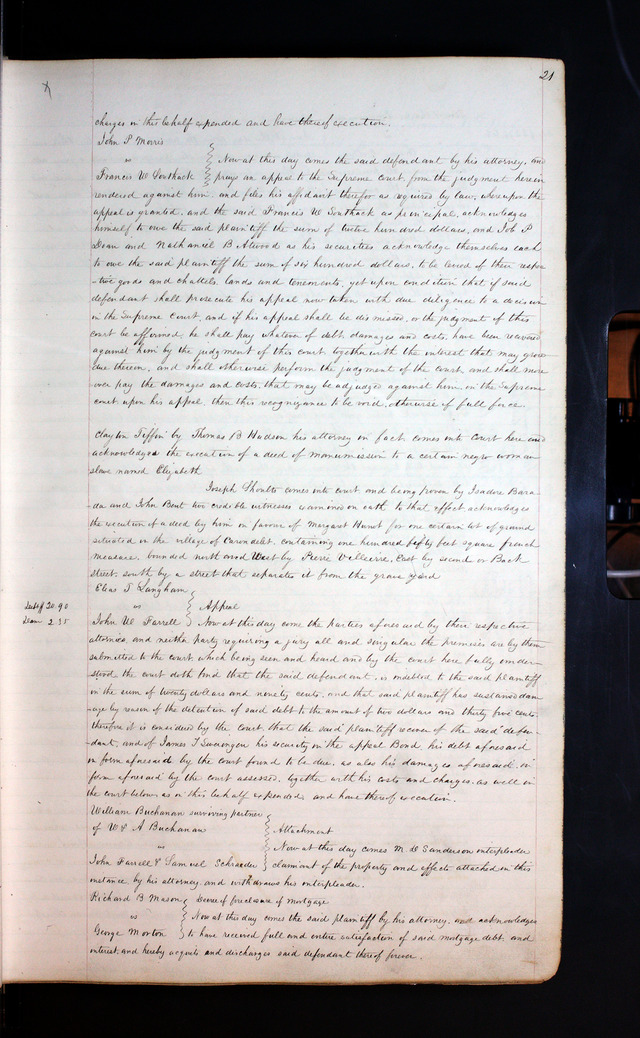 21
charges in this behalf expended and have thereof execution.
John P Morris
vs
Now at this day comes the said defendant by his attorney, and
Francis W Southack prays an appeal to the Supreme court, from the judgment herein
rendered against him, and files his affidavit therefor as required by law, whereupon the
appeal is granted, and the said Francis W Southack as principal, acknowledges
himself to owe the said plaintiff the sum of twelve hundred dollars, and Job P
Dean and Nathaniel B Atwood as his securities acknowledge themselves each
to owe the said plaintiff the sum of six hundred dollars, to be levied of their respec
-tive goods and chattels, lands and tenements, yet upon condition that if said
defendant shall prosecute his appeal now taken with due diligence to a decision
in the Supreme Court, and if his appeal shall be dismissed, or the judgment of this
court be affirmed, he shall pay whatever of debt, damages and costs, have been recovered
against him by the judgment of this court together with the interest that may grow
due thereon, and shall otherwise perform the judgment of the court, and shall more
over pay the damages and costs, that may be adjudged against him in the Supreme
court upon his appeal, then this recognizance to be void, otherwise of full force.
Clayton Tiffin by Thomas B Hudson his attorney in fact comes into court here and
acknowledges the execution of a deed of manumission to a certain negro woman
slave named Elizabeth
Joseph Shoults comes into court and being proven by Isadore Bara
da and John Bent two credible witnesses sworn on oath to that effect acknowledges
the execution of a deed by him in favour of Margaret Hunot for one certain lot of ground
situated in the village of Carondelet, containing one hundred fifty feet square french
measure, bounded north and West by Pierre Valleire, East by second or Back
Street, south by a street that separates it from the grave yard
Elias T Langham
vs
Appeal
Debt $ 20.90
Dam 2.35
John W Farrell Now at this day come the parties aforesaid by their respective
attornies, and neither party requiring a jury all and singular the premises are by them
submitted to the court, which being seen and heard and by the court here fully under
stood the court doth find that the said defendant, is indebted to the said plaintiff
in the sum of twenty dollars and ninety cents, and that said plaintiff has sustained dam
age by reason of the detention of said debt to the amount of two dollars and thirty five cents.
therefore it is considered by the court, that the said plaintiff recover of the said defen-
dant, and of James T Swearingen his security in the appeal Bond, his debt aforesaid
in form aforesaid by the court found to be due, as also his damages aforesaid, in
form aforesaid by the court assessed, together with his costs and charges, as well in
the court below as in this behalf expended, and have thereof execution.
William Buchanan surviving partner
of W & A Buchanan
Attachment
vs
Now at this day comes M. D Sanderson interpleader
John Farrell & Samuel Schrader claimant of the property and effects attached in this
instance, by his attorney, and withdraws his interpleader.
Richard B Mason Decree of foreclosure of mortgage
vs
Now at this day comes the said plaintiff by his attorney, and acknowledges
George Morton to have received full and entire satisfaction of said mortgage debt, and
interest, and hereby acquits and discharges said defendant thereof forever.